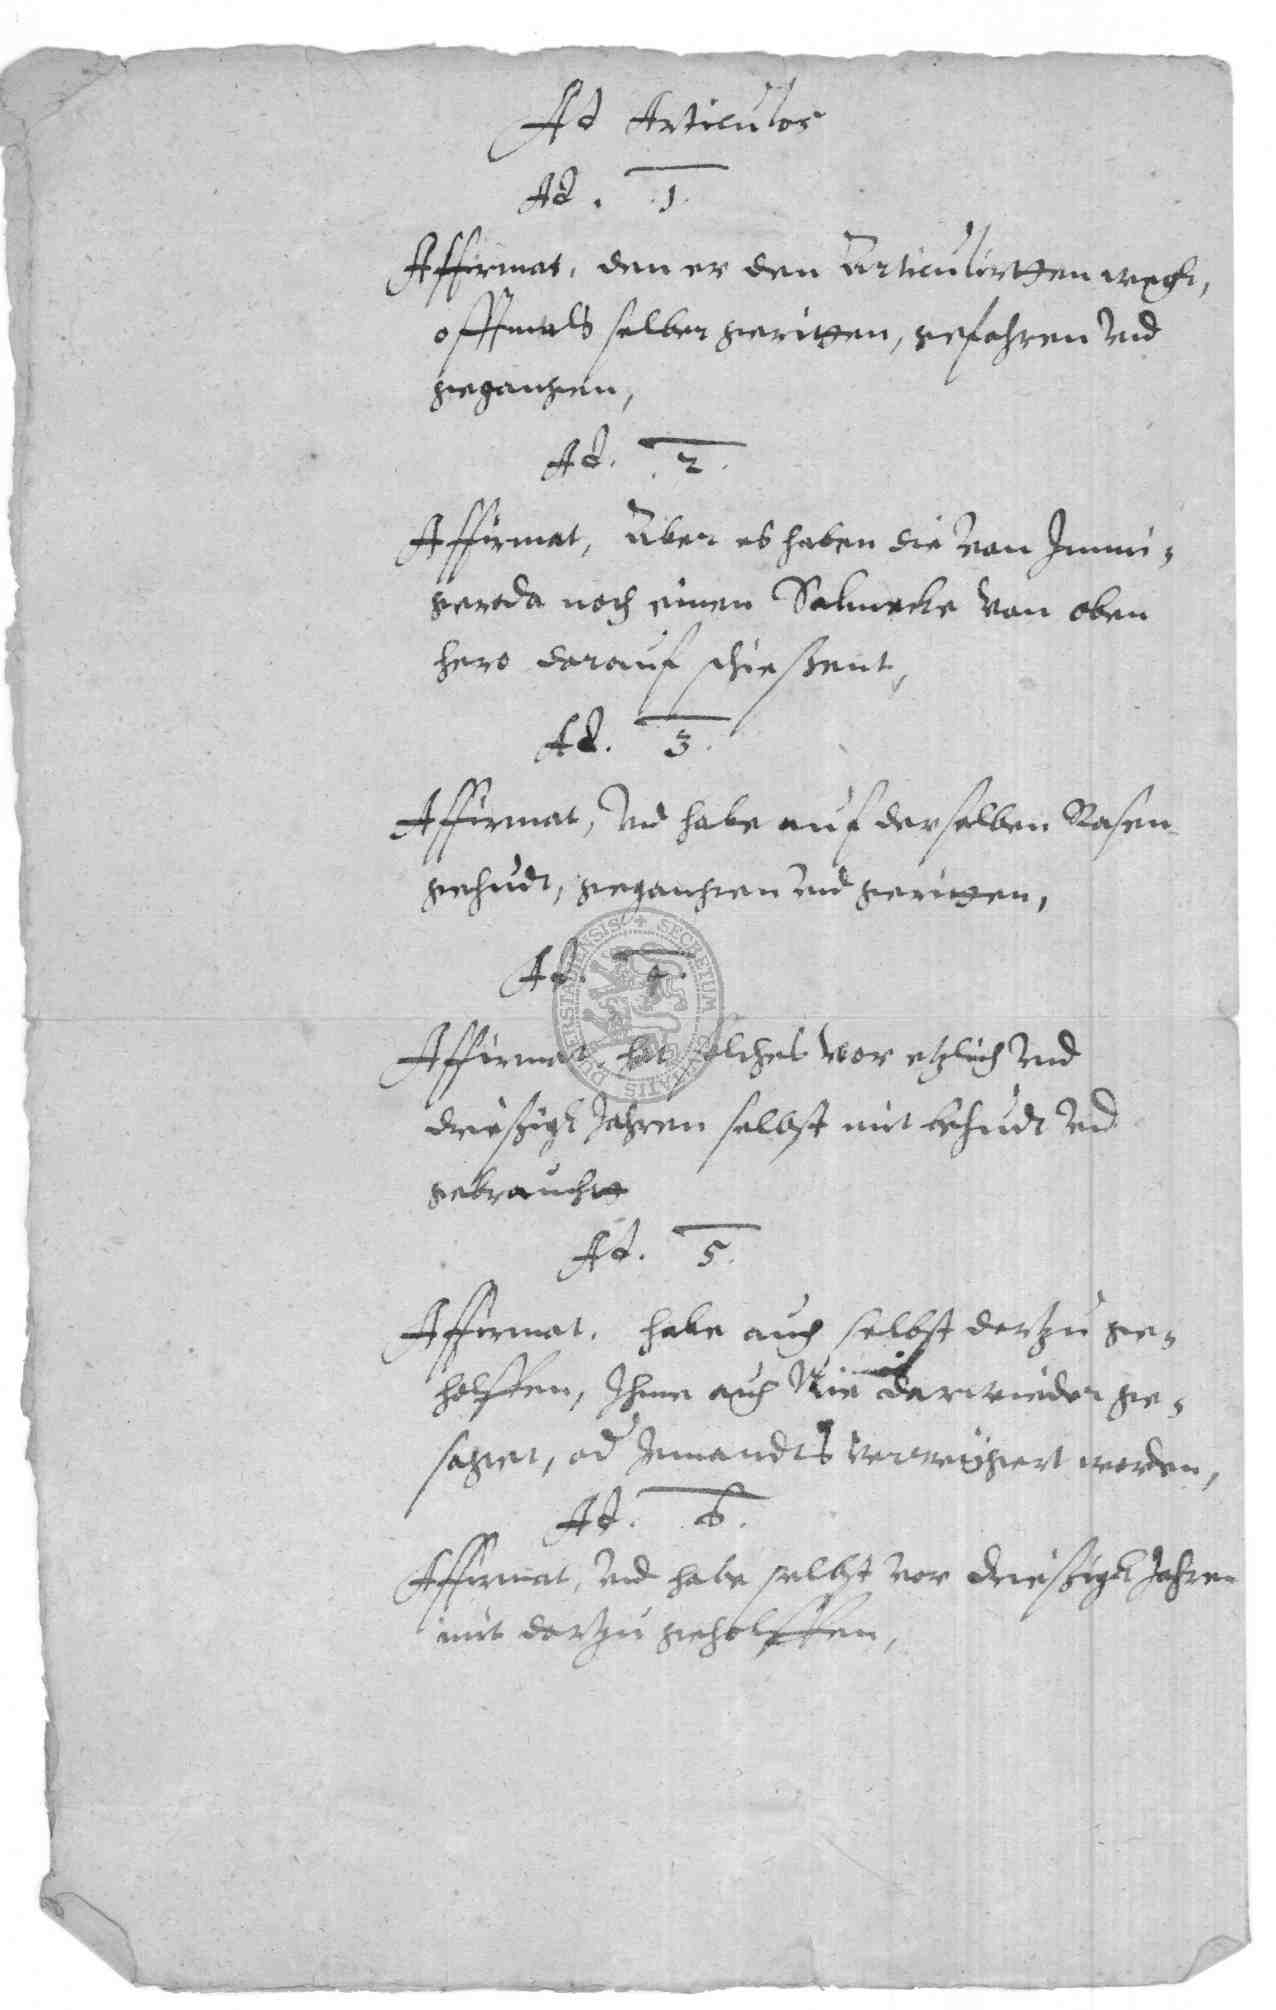 Ad Articulos
Ad. 1.
Affirmat, den er den Articulirtten wegk,
offtmals selber geritten, gefahren vnd
gegangen,
Ad. 2.
Affirmat, Aber es haben die von Immi-
geroda noch einen von oben
hero darauf schießent,
Ad. 3.
Affirmat, vnd habe auf derselben Rasen
gehudt, gegangen vnd geritten,
Ad. 4.
Affirmat, hab solches vor etzlich vnd
dreißigk Jahren selbst mit behudt vnd
gebraucht
Ad. 5.
Affirmat. habe auch selbst dartzu ge-
holffen, Ihme auch Nie darwieder ge-
saget, od Jemandts verweigert worden,
Ad. 6.
Affirmat, vnd habe selbst vor dreißigk Jahren
mit dartzu geholffen,
SECRETUM CIVITATIS DUDERSTADIENSIS